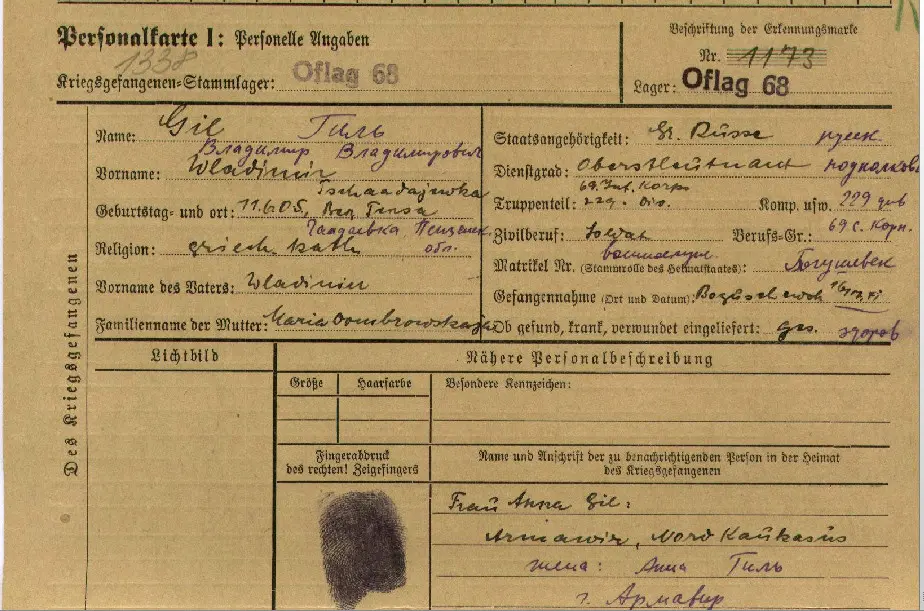 Personalkarte I: Personelle Angaben
1358
Kriegsgefangenen=Stammlager: Oflag 68
Beschriftung der Erkennungsmarke
Nr. 1173
Lager: Oflag 68
Des Kriegsgefangenen
Name: Gil Гиль
Владимир Владимирович
Vorname: Wladimir
Tschaadajewka
Geburtstag= und ort: 11.6.05, Bez Pensa
Чаадаевка Пензенск.
обл.
Religion: griech kath
Vorname des Vaters: Wladimir
Familienname der Mutter: Maria Dombrowskaja
Staatsangehörigkeit: Gr. Russe русск
Dienstgrad: Oberstleutnant подполковн
69. Inf. Korps
Truppenteil: 229. Div. Komp. usw. 229 див
69 с. Корп.
Zivilberuf: Soldat Berufs=Gr.:
Matrikel Nr. (Stammrolle des Heimatstaates): Богушевск
Gefangennahme (Ort und Datum):
Ob gesund, krank, verwundet eingeliefert: ges. здоров
Lichtbild
Nähere Personalbeschreibung
Größe Haarfarbe Besondere Kennzeichen:
Fingerabdruck
des rechten! Zeigefingers
Name und Anschrift der zu benachrichtigenden Person in der Heimat
des Kriegsgefangenen
Frau Anna Gil:
Armawir, Nord Kaukasus
жена: Анна Гиль
г. Армавир